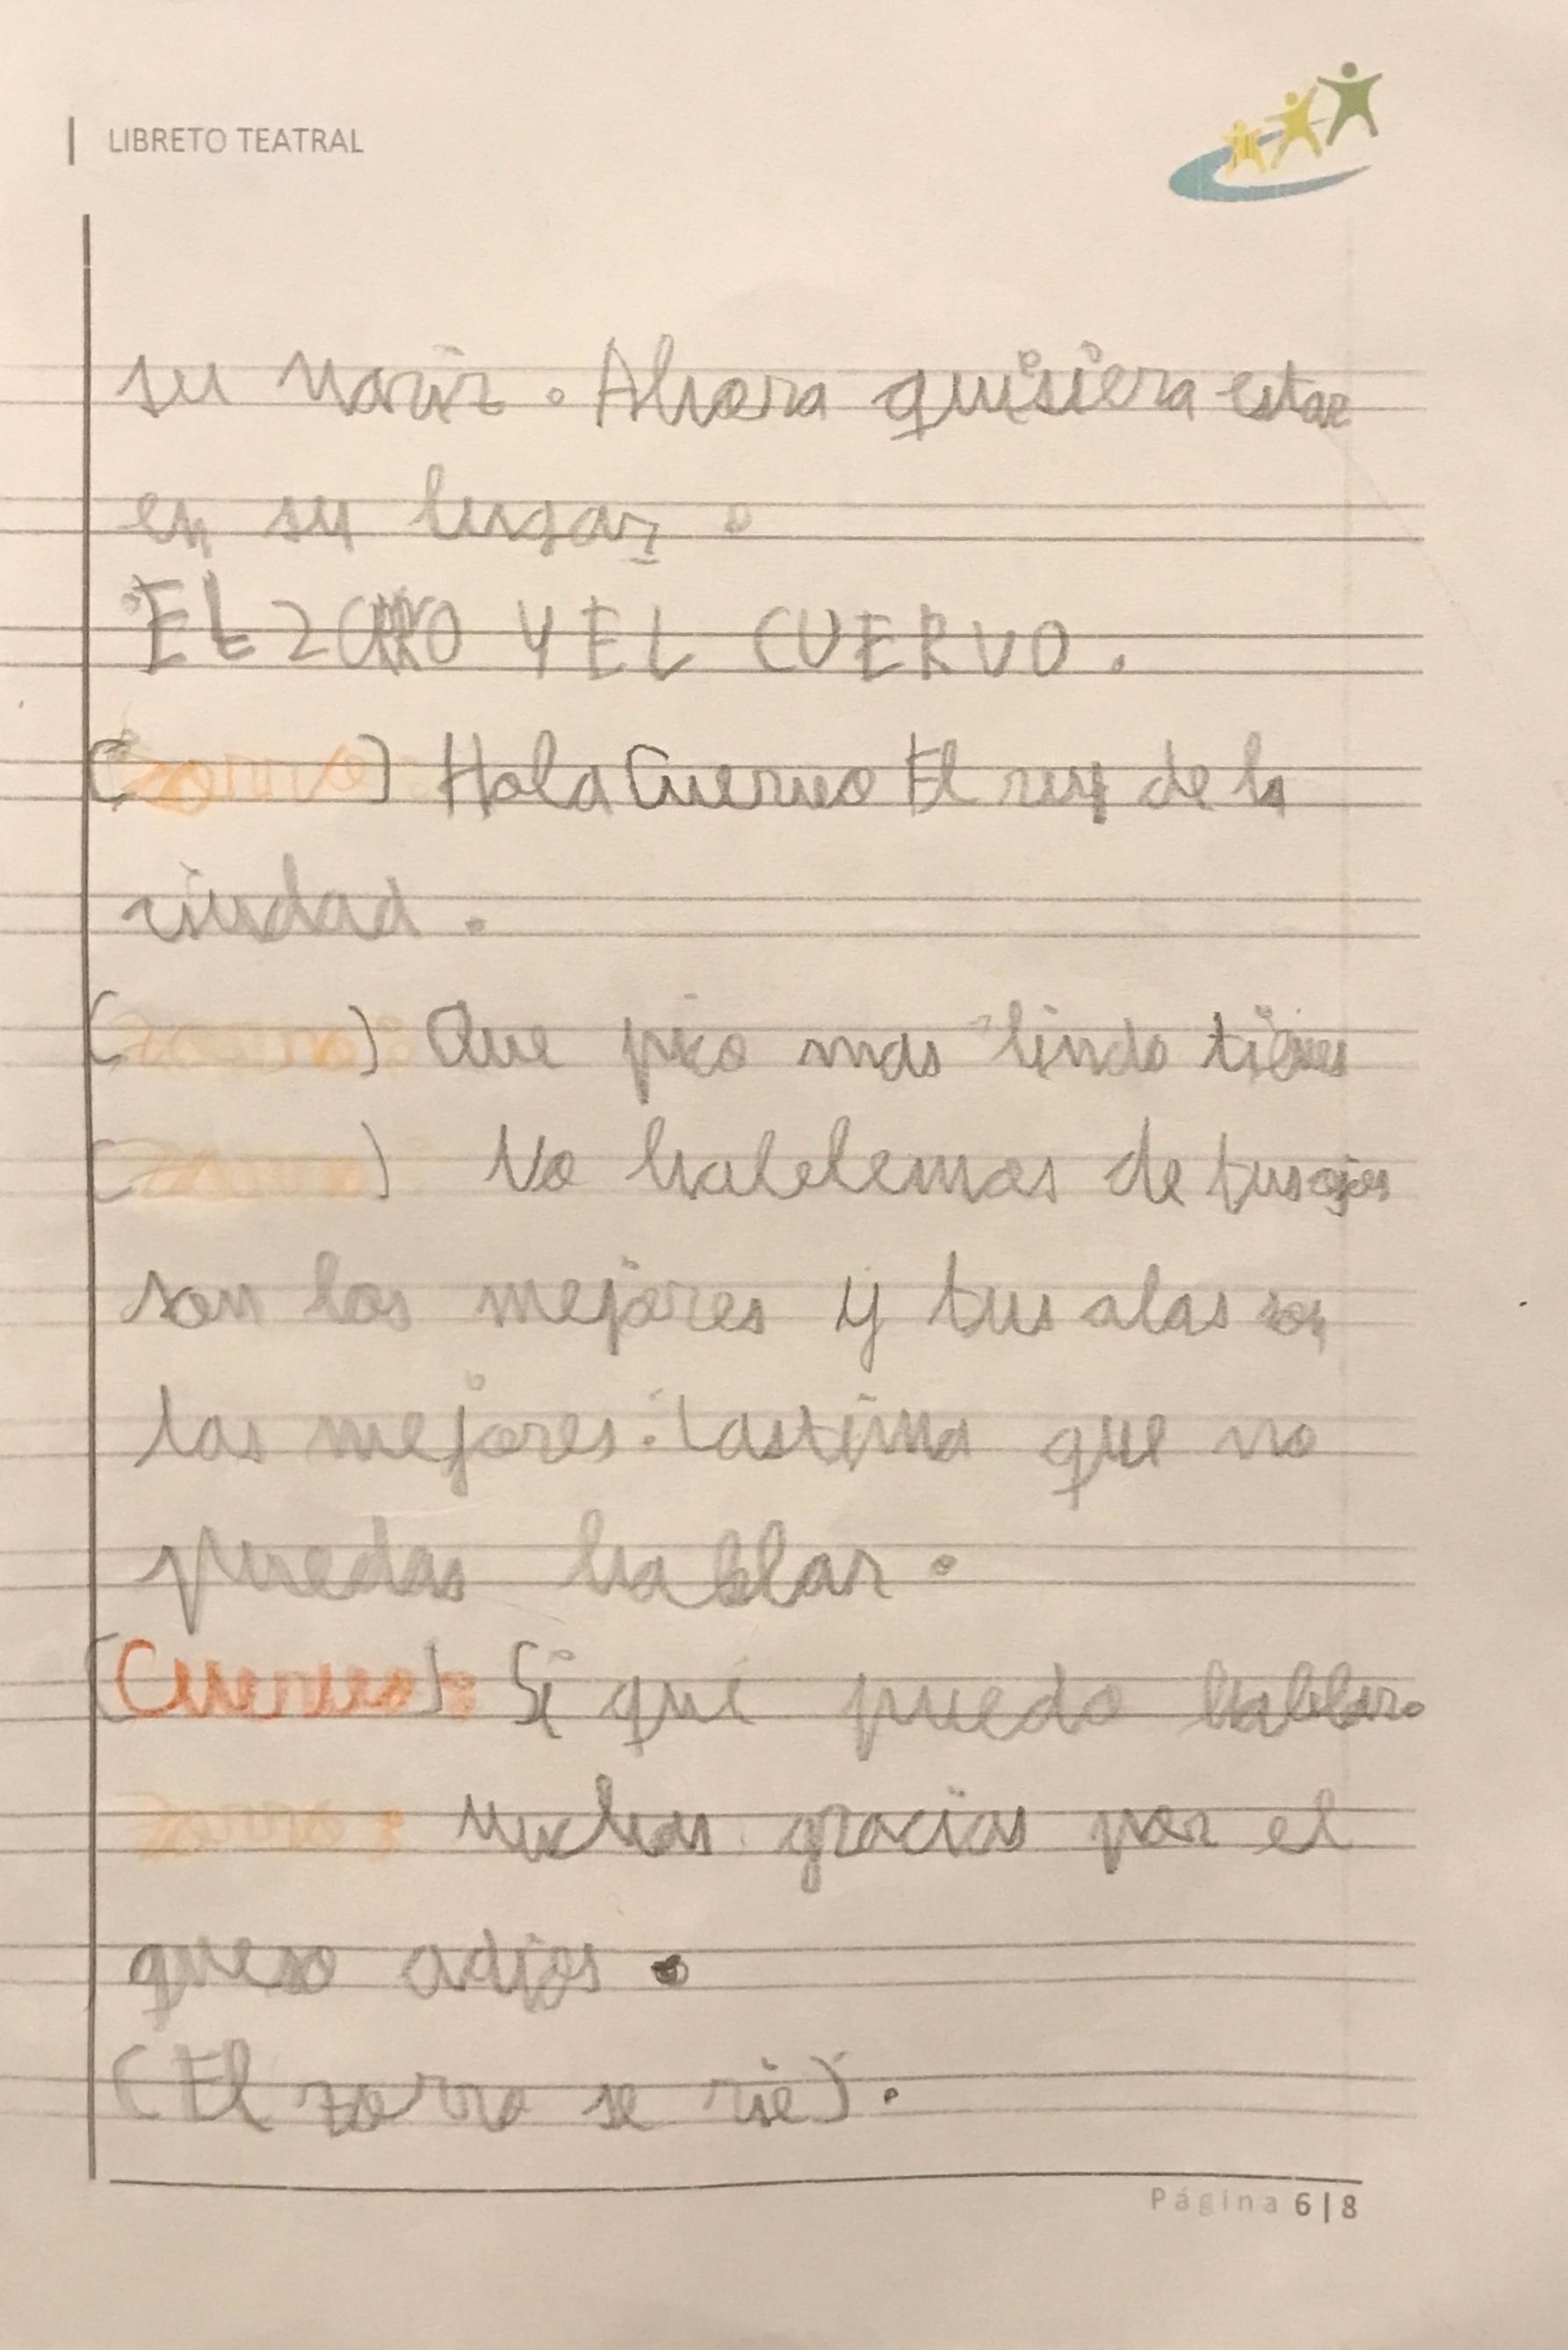 LIBRETO TEATRAL
su nariz. Ahora quisiera estar
en su lugar.
EL ZORRO Y EL CUERVO.
(zorro) Hola Cuervo El rey de la
ciudad.
(zorro): Que pico mas lindo tienes
(zorro): No hablemos de tus ojos
son los mejores y tus alas son
las mejores. Lastima que no
puedas hablar.
(Cuervo): Si que puedo hablar.
Zorro: Muchas gracias por el
queso adios.
(El zorro se rie).
Página 6|8